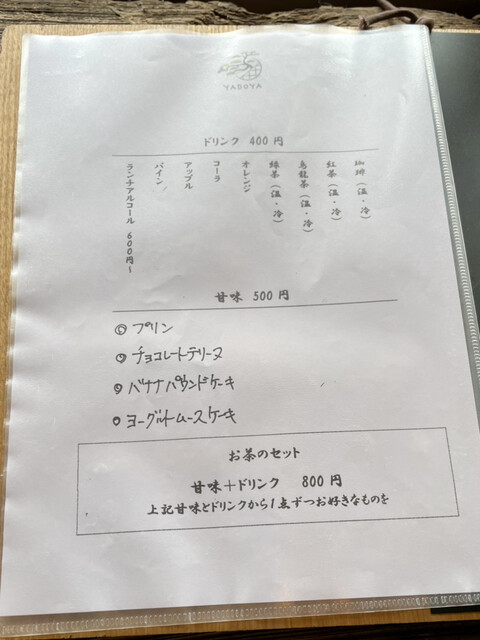 YADOYA
ドリンク 400円
珈琲（温・冷）
紅茶（温・冷）
烏龍茶（温・冷）
緑茶（温・冷）
オレンジ
コーラ
アップル
パイン
ランチアルコール 600円〜
甘味 500円
プリン
チョコレートテリーヌ
バナナパウンドケーキ
ヨーグルトムースケーキ
お茶のセット
甘味＋ドリンク 800円
上記甘味とドリンクから1点ずつお好きなものを